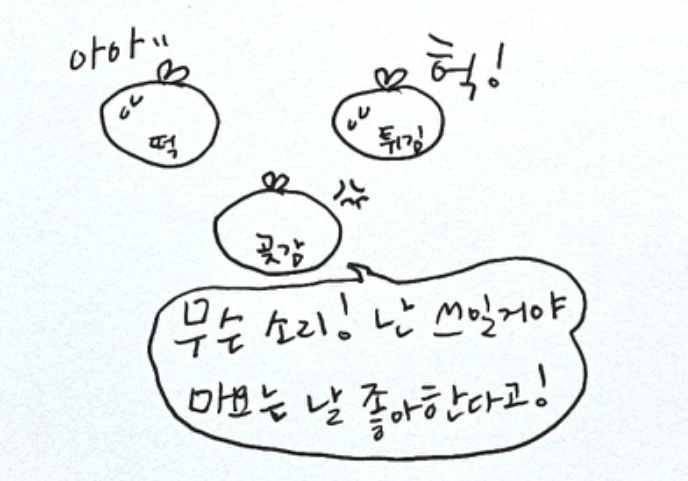 아아"
헉!
떡
튀김
곶감
무슨 소리! 난 쓰일거야
마요는 날 좋아한다고!